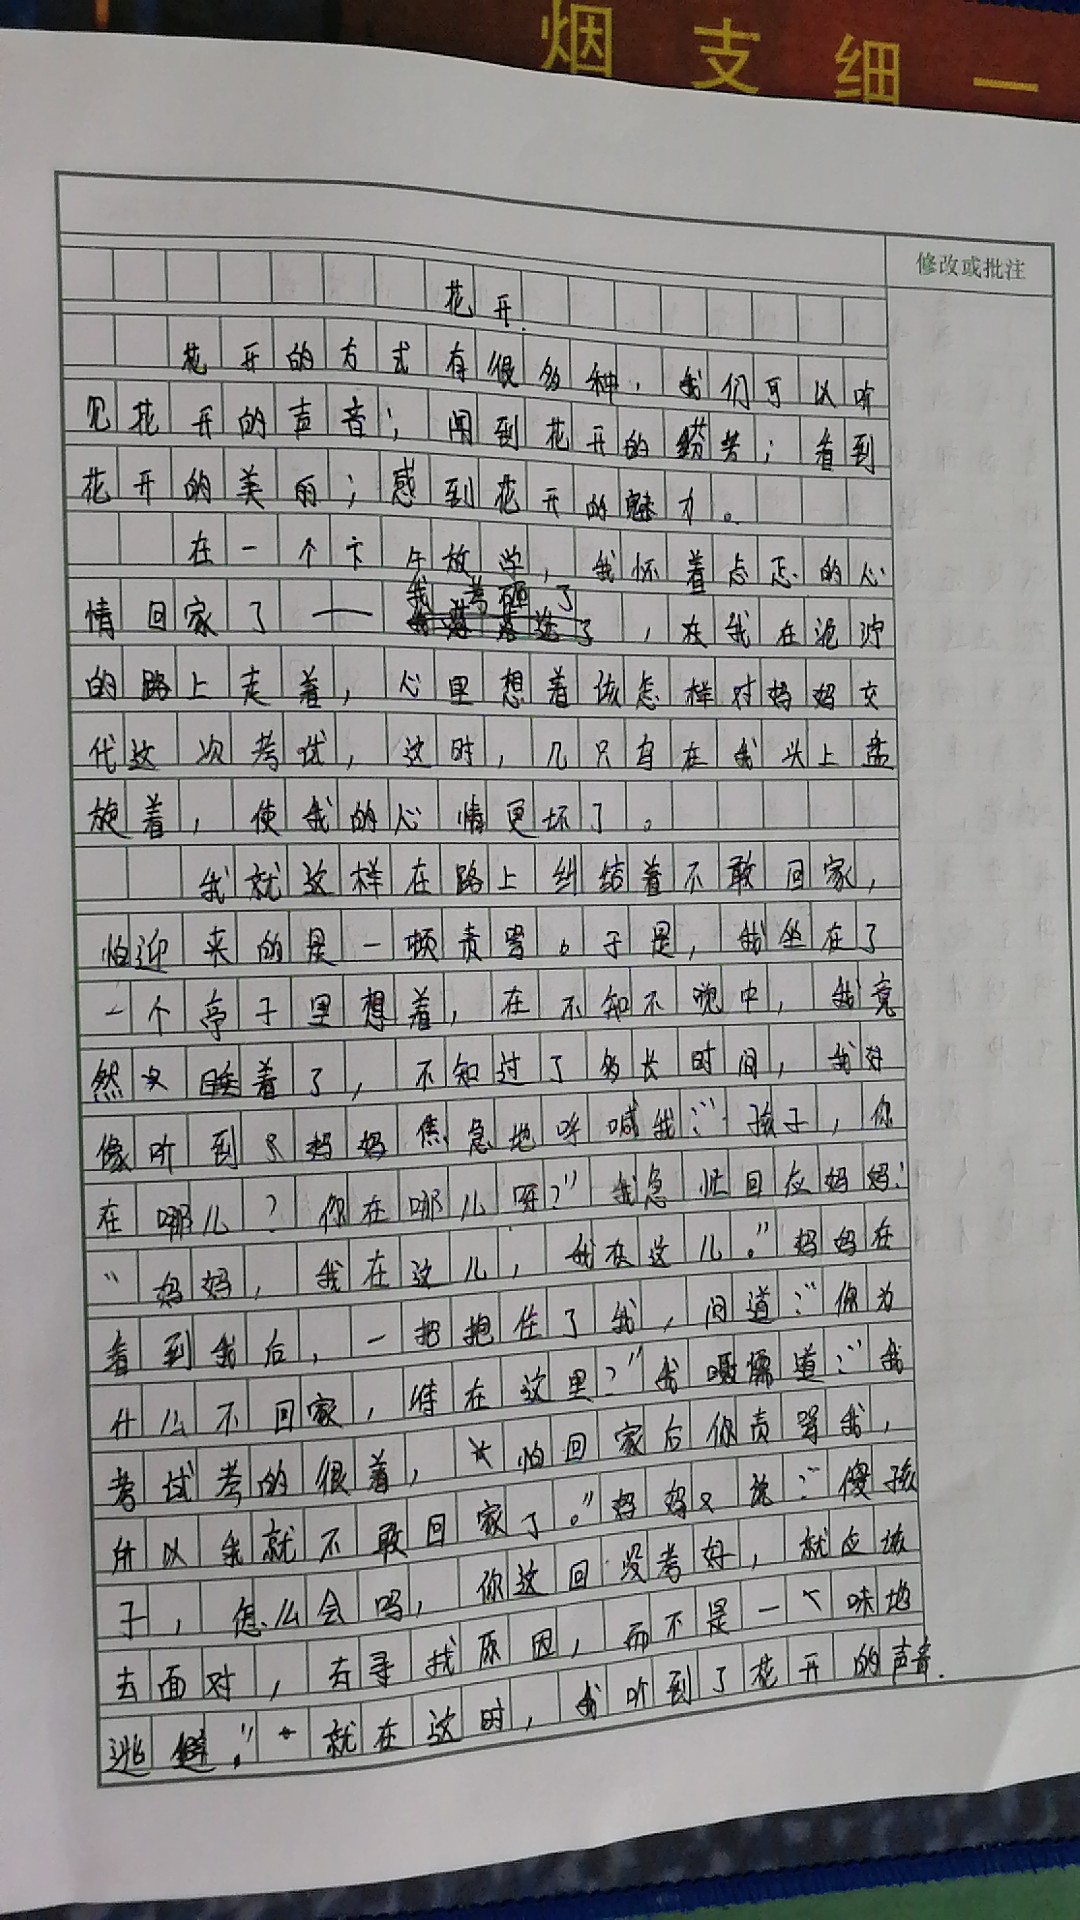 烟支细一
修改或批注
花开
花开的方式有很多种，我们可以听
见花开的声音；闻到花开的芬芳；看到
花开的美丽；感到花开的魅力。
在一个下午放学，我怀着忐忑的心
情回家了——我考砸了，在我在泥泞
的路上走着，心里想着该怎样对妈妈交
代这次考试，这时，几只鸟在我头上盘
旋着，使我的心情更坏了。
我就这样在路上纠结着不敢回家，
怕迎来的是一顿责骂。于是，我坐在了
一个亭子里想着，在不知不晚中，我竟
然睡着了，不知过了多长时间，我好
像听到妈妈焦急地呼喊我："孩子，你
在哪儿？你在哪儿呀？"我急忙回应妈妈：
"妈妈，我在这儿，我在这儿。"妈妈在
看到我后，一把抱住了我，问道："你为
什么不回家，待在这里？"我嗫嚅道："我
考试考的很差，怕回家后你责骂我，
所以我就不敢回家了。"妈妈又说："傻孩
子，怎么会吗，你这回没考好，就应该
去面对，去寻找原因，而不是一个味地
逃避。"就在这时，我听到了花开的声音.